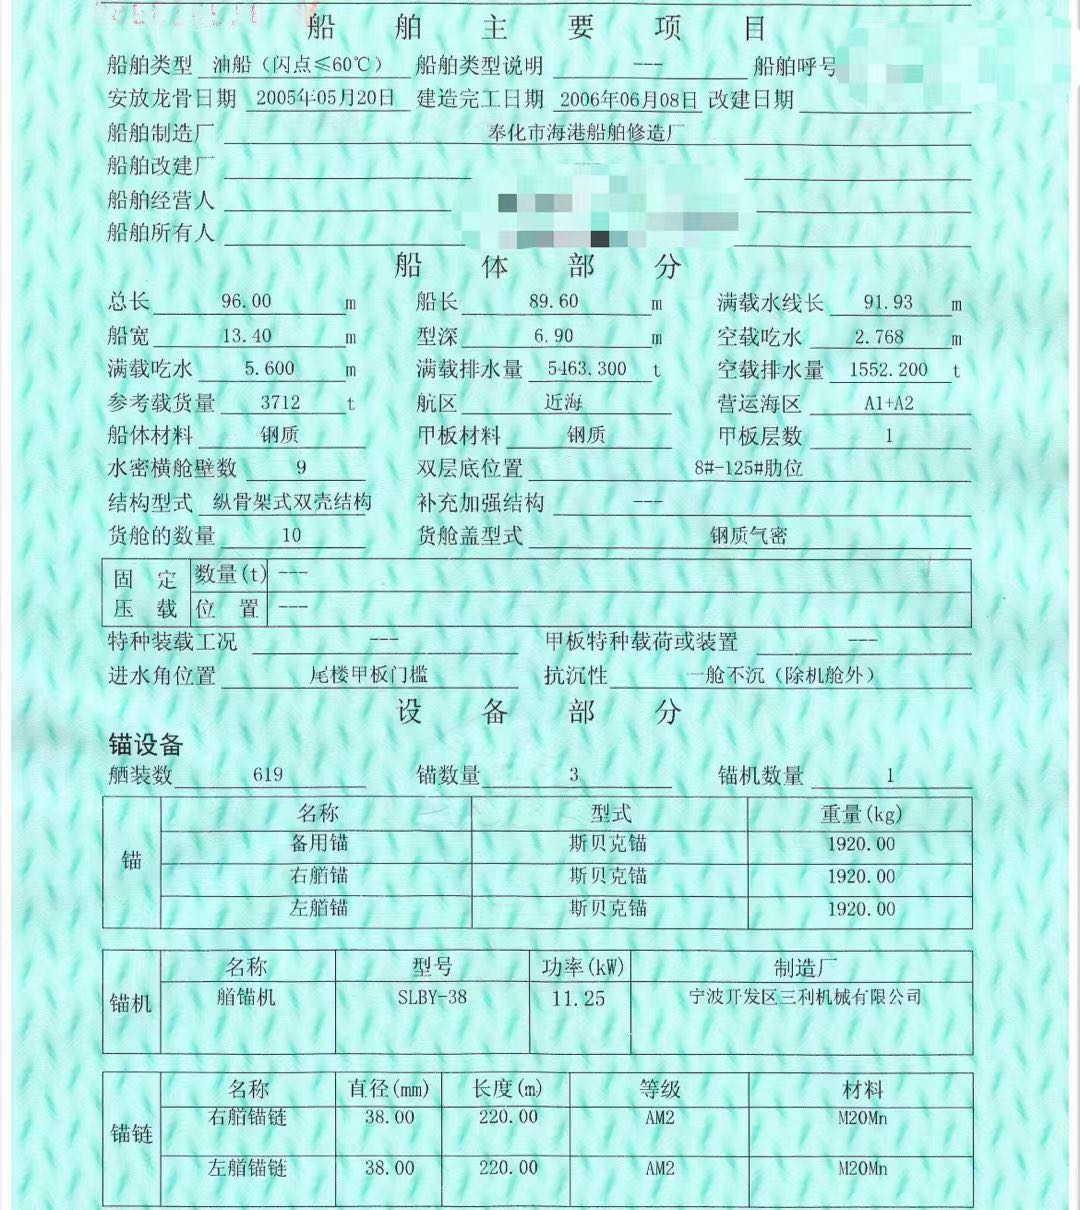 船舶主要项目
船舶类型 油船（闪点≤60℃） 船舶类型说明 --- 船舶呼号
安放龙骨日期 2005年05月20日 建造完工日期 2006年06月08日 改建日期
船舶制造厂 奉化市海港船舶修造厂
船舶改建厂
船舶经营人
船舶所有人
船体部分
总长 96.00 m 船长 89.60 m 满载水线长 91.93 m
船宽 13.40 m 型深 6.90 m 空载吃水 2.768 m
满载吃水 5.600 m 满载排水量 5463.300 t 空载排水量 1552.200 t
参考载货量 3712 t 航区 近海 营运海区 A1+A2
船体材料 钢质 甲板材料 钢质 甲板层数 1
水密横舱壁数 9 双层底位置 8#-125#肋位
结构型式 纵骨架式双壳结构 补充加强结构 ---
货舱的数量 10 货舱盖型式 钢质气密
固定压载 数量(t) ---
位置 ---
特种装载工况 --- 甲板特种载荷或装置 ---
进水角位置 尾楼甲板门槛 抗沉性 一舱不沉（除机舱外）
设备部分
锚设备
舾装数 619 锚数量 3 锚机数量 1
锚 名称 型式 重量(kg)
备用锚 斯贝克锚 1920.00
右艏锚 斯贝克锚 1920.00
左艏锚 斯贝克锚 1920.00
锚机 名称 型号 功率(kW) 制造厂
艏锚机 SLBY-38 11.25 宁波开发区三利机械有限公司
锚链 名称 直径(mm) 长度(m) 等级 材料
右艏锚链 38.00 220.00 AM2 M20Mn
左艏锚链 38.00 220.00 AM2 M20Mn